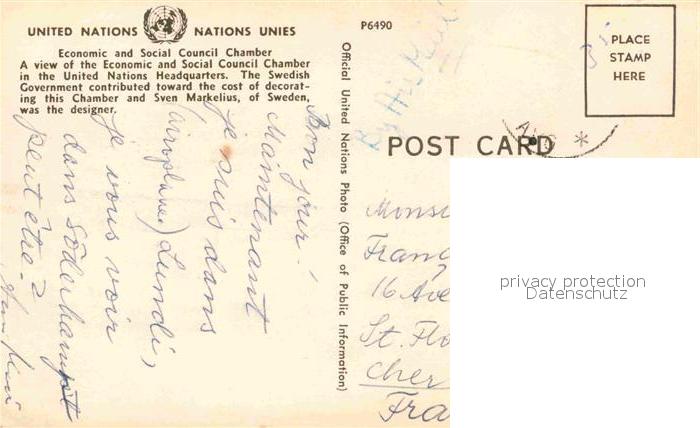 UNITED NATIONS NATIONS UNIES
Economic and Social Council Chamber
A view of the Economic and Social Council Chamber
in the United Nations Headquarters. The Swedish
Government contributed toward the cost of decorat-
ing this Chamber and Sven Markelius, of Sweden,
was the designer.
Bon jour!
Maintenant
je suis dans
(airoplane) Lundi,
je vous voir
dans Söderhamn
peut être?
Official United Nations Photo (Office of Public Information)
P6490
By Air Mail
PLACE
STAMP
HERE
POST CARD
Monsi
Franc
16 Ave
St. Flo
Cher
Fra
privacy protection
Datenschutz